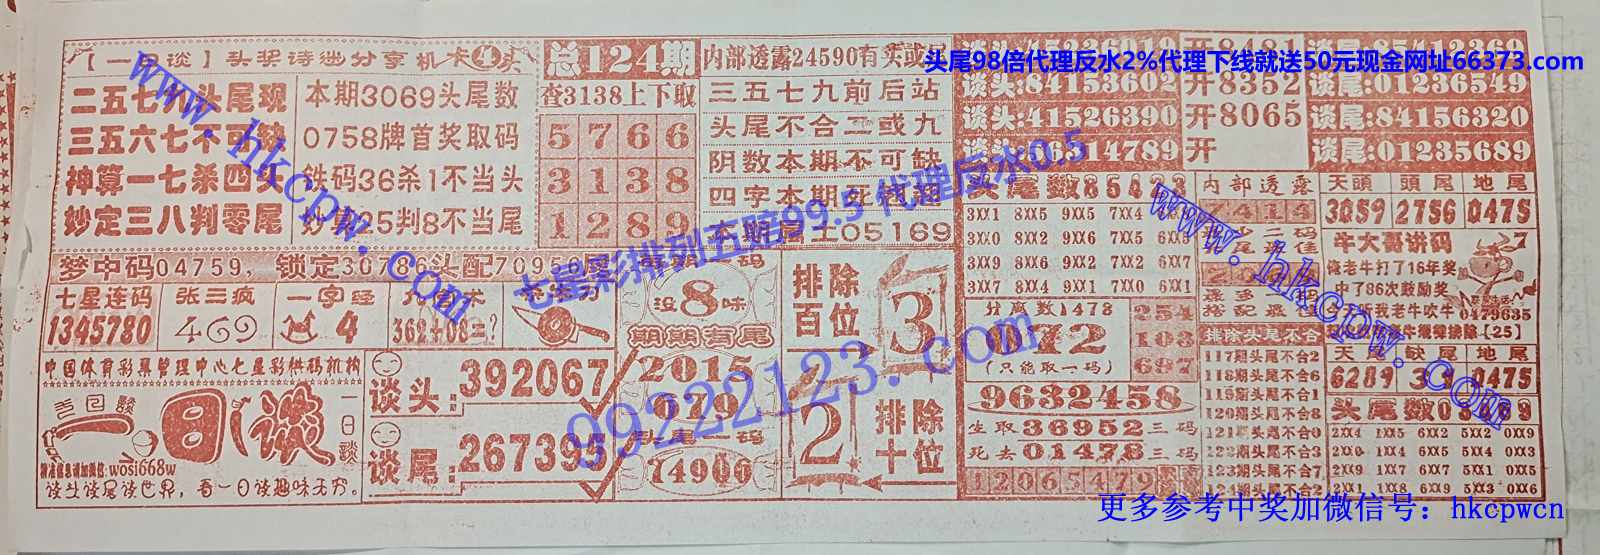 头尾98倍代理反水2%代理下线就送50元现金网址66373.com
【一日谈】头奖诗迷分享机
卡④头
二五七九头尾现
三五六七不可缺
神算一七杀四头
妙定三八判零尾
本期3069头尾数
0758牌首奖取码
铁码36杀1不当头
妙算25判8不当尾
总124期
查3138上下取
5 7 6 6
3 1 3 8
1 2 8 9
内部透露24590有买或
三五七九前后站
头尾不合二或九
阴数本期不可缺
四字本期死
本期 士05169
谈头:84153602
谈头:41526390
开8481
开8352
开8065
开
谈尾:01236549
谈尾:84156320
谈尾:01235689
梦中码04759,锁定30786头配70956尾
七星连码
1345780
张三疯
469
一字经
4
362+08=?
没8味
期期有尾
2015
079
头尾一码
74906
排除百位
3
2
排除十位
中国体育彩票管理中心七星彩供码机构
一日谈
wosi668w
谈头谈尾谈世界,看一日谈趣味无穷。
谈头:392067
谈尾:267395
3XX1 8XX5 9XX5 7XX4
3XX0 8XX2 9XX6 7XX5
3XX9 8XX6 9XX2 7XX6
3XX7 8XX4 9XX1 7XX0 6XX1
分离数1478
072
(只能取一码)
254
103
697
9632458
生取36952三码
死去01478三码
12065479
内部透露
最多一码
搭配最佳
排除头尾不合
117期头尾不合2
118期头尾不合6
119期头尾不合1
120期头尾不合8
121期头尾不合0
122期头尾不合3
123期头尾不合7
天頭 頭尾 地尾
3059 2756 0475
牛大哥讲码
俺老牛打了16年奖
中了86次鼓励奖
听我老牛吹牛
0479635
【25】
天 缺尾 地尾
6289 0475
头尾数
2XX4 1XX5 6XX2 5XX2 0XX9
2XX0 1XX4 6XX5 5XX4 0XX3
2XX9 1XX7 6XX7 5XX1 0XX5
2XX1 1XX8 6XX9 5XX3 0XX6
www.hkcpw.com
七星彩排列五赔99.5 代理反水0.5
99222123.com
www.hkcpw.com
更多参考中奖加微信号：hkcpwcn